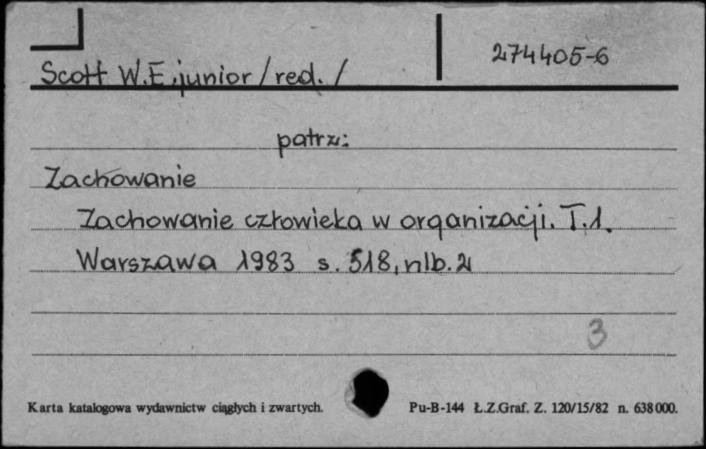 Scott W.E. junior /red./
274405-6
patrz:
Zachowanie
Zachowanie człowieka w organizacji. T.1.
Warszawa 1983 s. 518, nlb. 2
3
Karta katalogowa wydawnictw ciągłych i zwartych.
Pu-B-144 Ł.Z.Graf. Z. 120/15/82 n. 638 000.